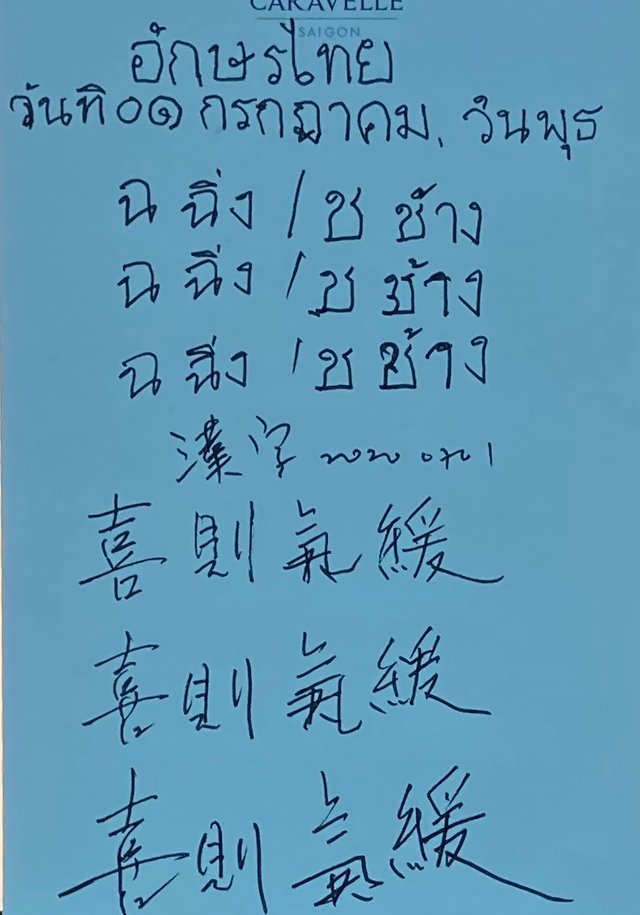 CARAVELLE
SAIGON
อักษรไทย
วันที่ ๐๑ กรกฎาคม, วันพุธ
ฉ ฉิ่ง / ช ช้าง
ฉ ฉิ่ง / ช ช้าง
ฉ ฉิ่ง / ช ช้าง
漢字 2020 0701
喜則氣緩
喜則氣緩
喜則氣緩